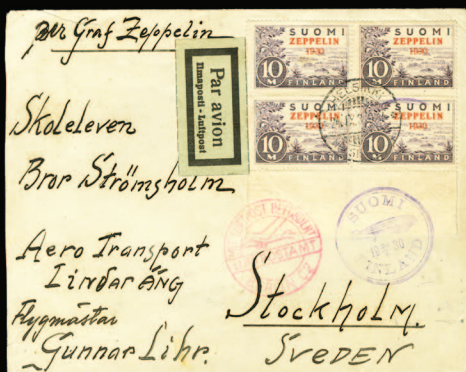 per Graf Zeppelin
Par avion
Ilmaposti - Luftpost
SUOMI
ZEPPELIN
1930
10 M
FINLAND
SUOMI
ZEPPELIN
1930
10 M
FINLAND
SUOMI
ZEPPELIN
1930
10 M
FINLAND
SUOMI
ZEPPELIN
1930
10 M
FINLAND
Skoleleven
Bror Strömsholm
Aero Transport
Lindar Äng
Flygmästar
Gunnar Lihr.
SUOMI
FINLAND
Stockholm.
SVEDEN